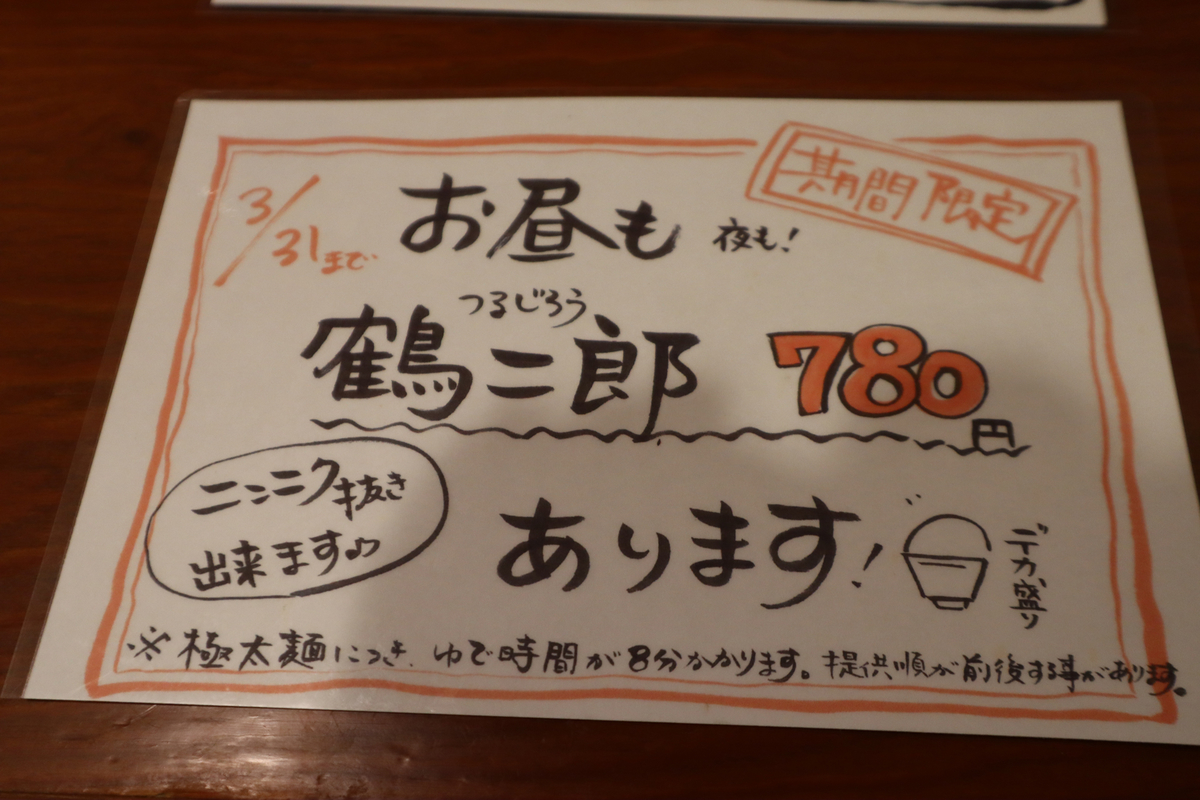 期間限定
3/31まで
お昼も 夜も！
つるじろう
鶴二郎 780円
ニンニク抜き
出来ます♪
あります！
デカ盛り
※極太麺につき、ゆで時間が8分かかります。提供順が前後する事があります。